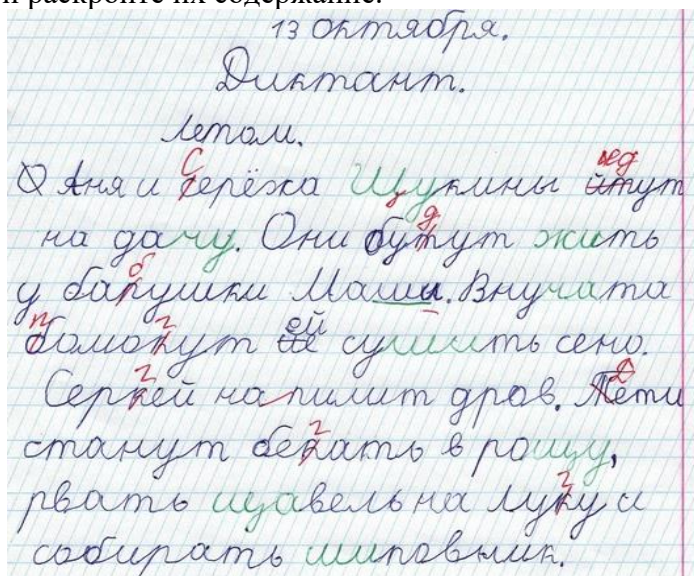 и раскройте их содержание.
13 октября.
Диктант.
Летом.
Аня и серёжа Щукины йтут
на дачу. Они бутут жить
у бапушки Маши. Внучата
бомокут ей сушить сено.
Серкей напилит дров. Тети
станут бекать в рощу,
рвать щавель на луку и
собирать шиповник.